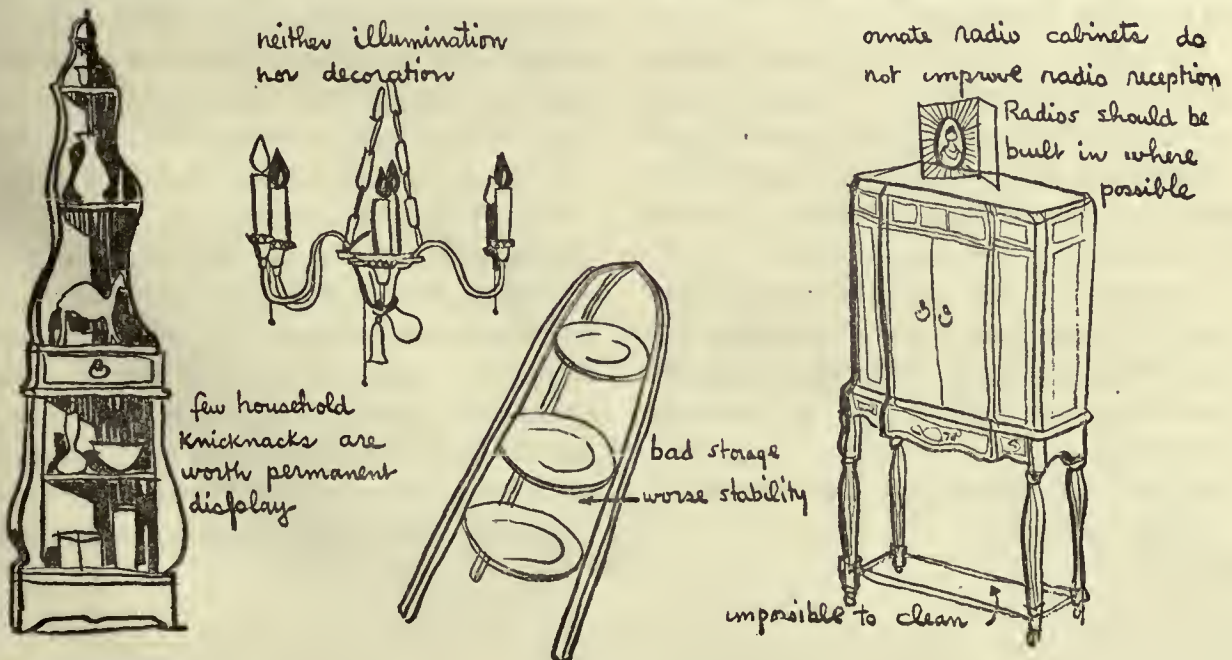 neither illumination
nor decoration
ornate radio cabinets do
not improve radio reception
Radios should be
built in where
possible
few household
knicknacks are
worth permanent
display
bad storage
worse stability
impossible to clean